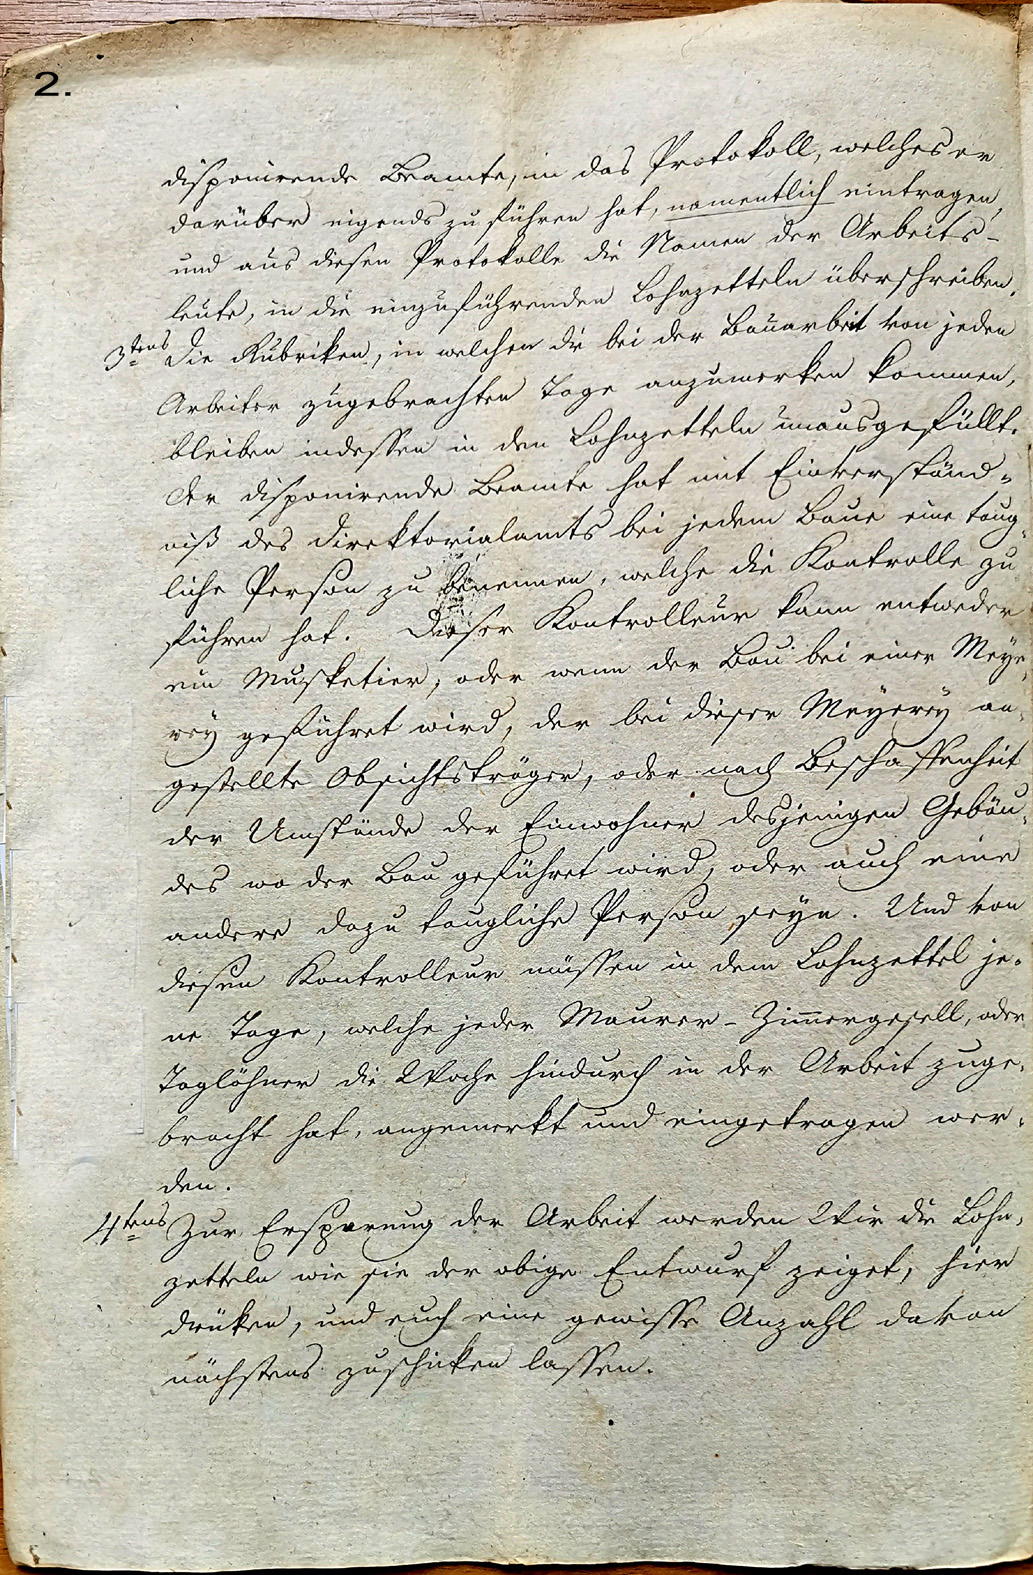 2.
disponirende Beamte, in das Protokoll, welches er
darüber eigends zu führen hat, namentlich eintragen,
und aus diesen Protokolle die Namen der Arbeits-
leute, in die einzuführenden Lohnzetteln überschreiben.
3tens Die Rubriken, in welchen die bei der Bauarbeit von jeden
Arbeiter zugebrachten Tage anzumerken kommen,
bleiben indessen in den Lohnzetteln unausgefüllt.
Der disponirende Beamte hat mit Einverständ-
niß des Direktorialamts bei jedem Baue eine taug-
liche Person zu benennen, welche die Kontrolle zu
führen hat. Dieser Kontrolleur kann entweder
ein Musketier, oder wenn der Bau bei einer Meye-
rey geführet wird, der bei dieser Meyerey an-
gestellte Obsichtsträger, oder nach Beschaffenheit
der Umstände der Einwohner desjenigen Gebäu-
des wo der Bau geführet wird, oder auch eine
andere dazu taugliche Person seyn. Und von
diesen Kontrolleur müssen in dem Lohnzettel je-
ne Tage, welche jeder Maurer- Zimmergesell, oder
Taglöhner die Woche hindurch in der Arbeit zuge-
bracht hat, angemerkt und eingetragen wer-
den.
4tens Zur Ersparung der Arbeit werden Wir die Lohn-
zetteln wie sie der obige Entwurf zeiget, hier
drüken, und euch eine gewisse Anzahl davon
nächstens zuschicken lassen.